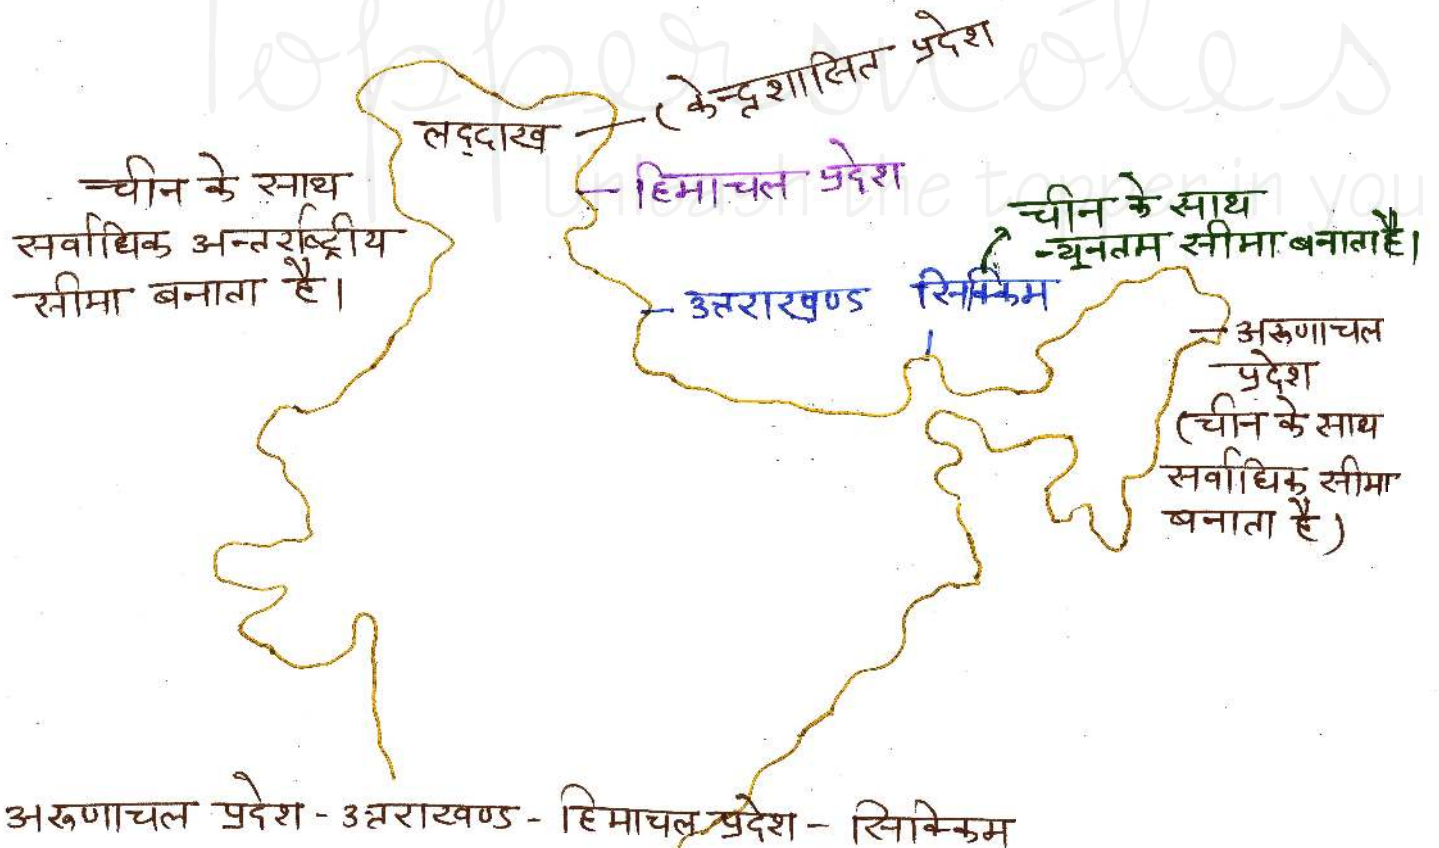 Toppernotes
Unleash the topper in you
लद्दाख
(केन्द्रशासित प्रदेश
चीन के साथ
सर्वाधिक अन्तर्राष्ट्रीय
सीमा बनाता है।
हिमाचल प्रदेश
चीन के साथ
न्यूनतम सीमा बनाता है।
उत्तराखण्ड
सिक्किम
अरूणाचल
प्रदेश
(चीन के साथ
सर्वाधिक सीमा
बनाता है)
अरूणाचल प्रदेश - उत्तराखण्ड - हिमाचल प्रदेश - सिक्किम